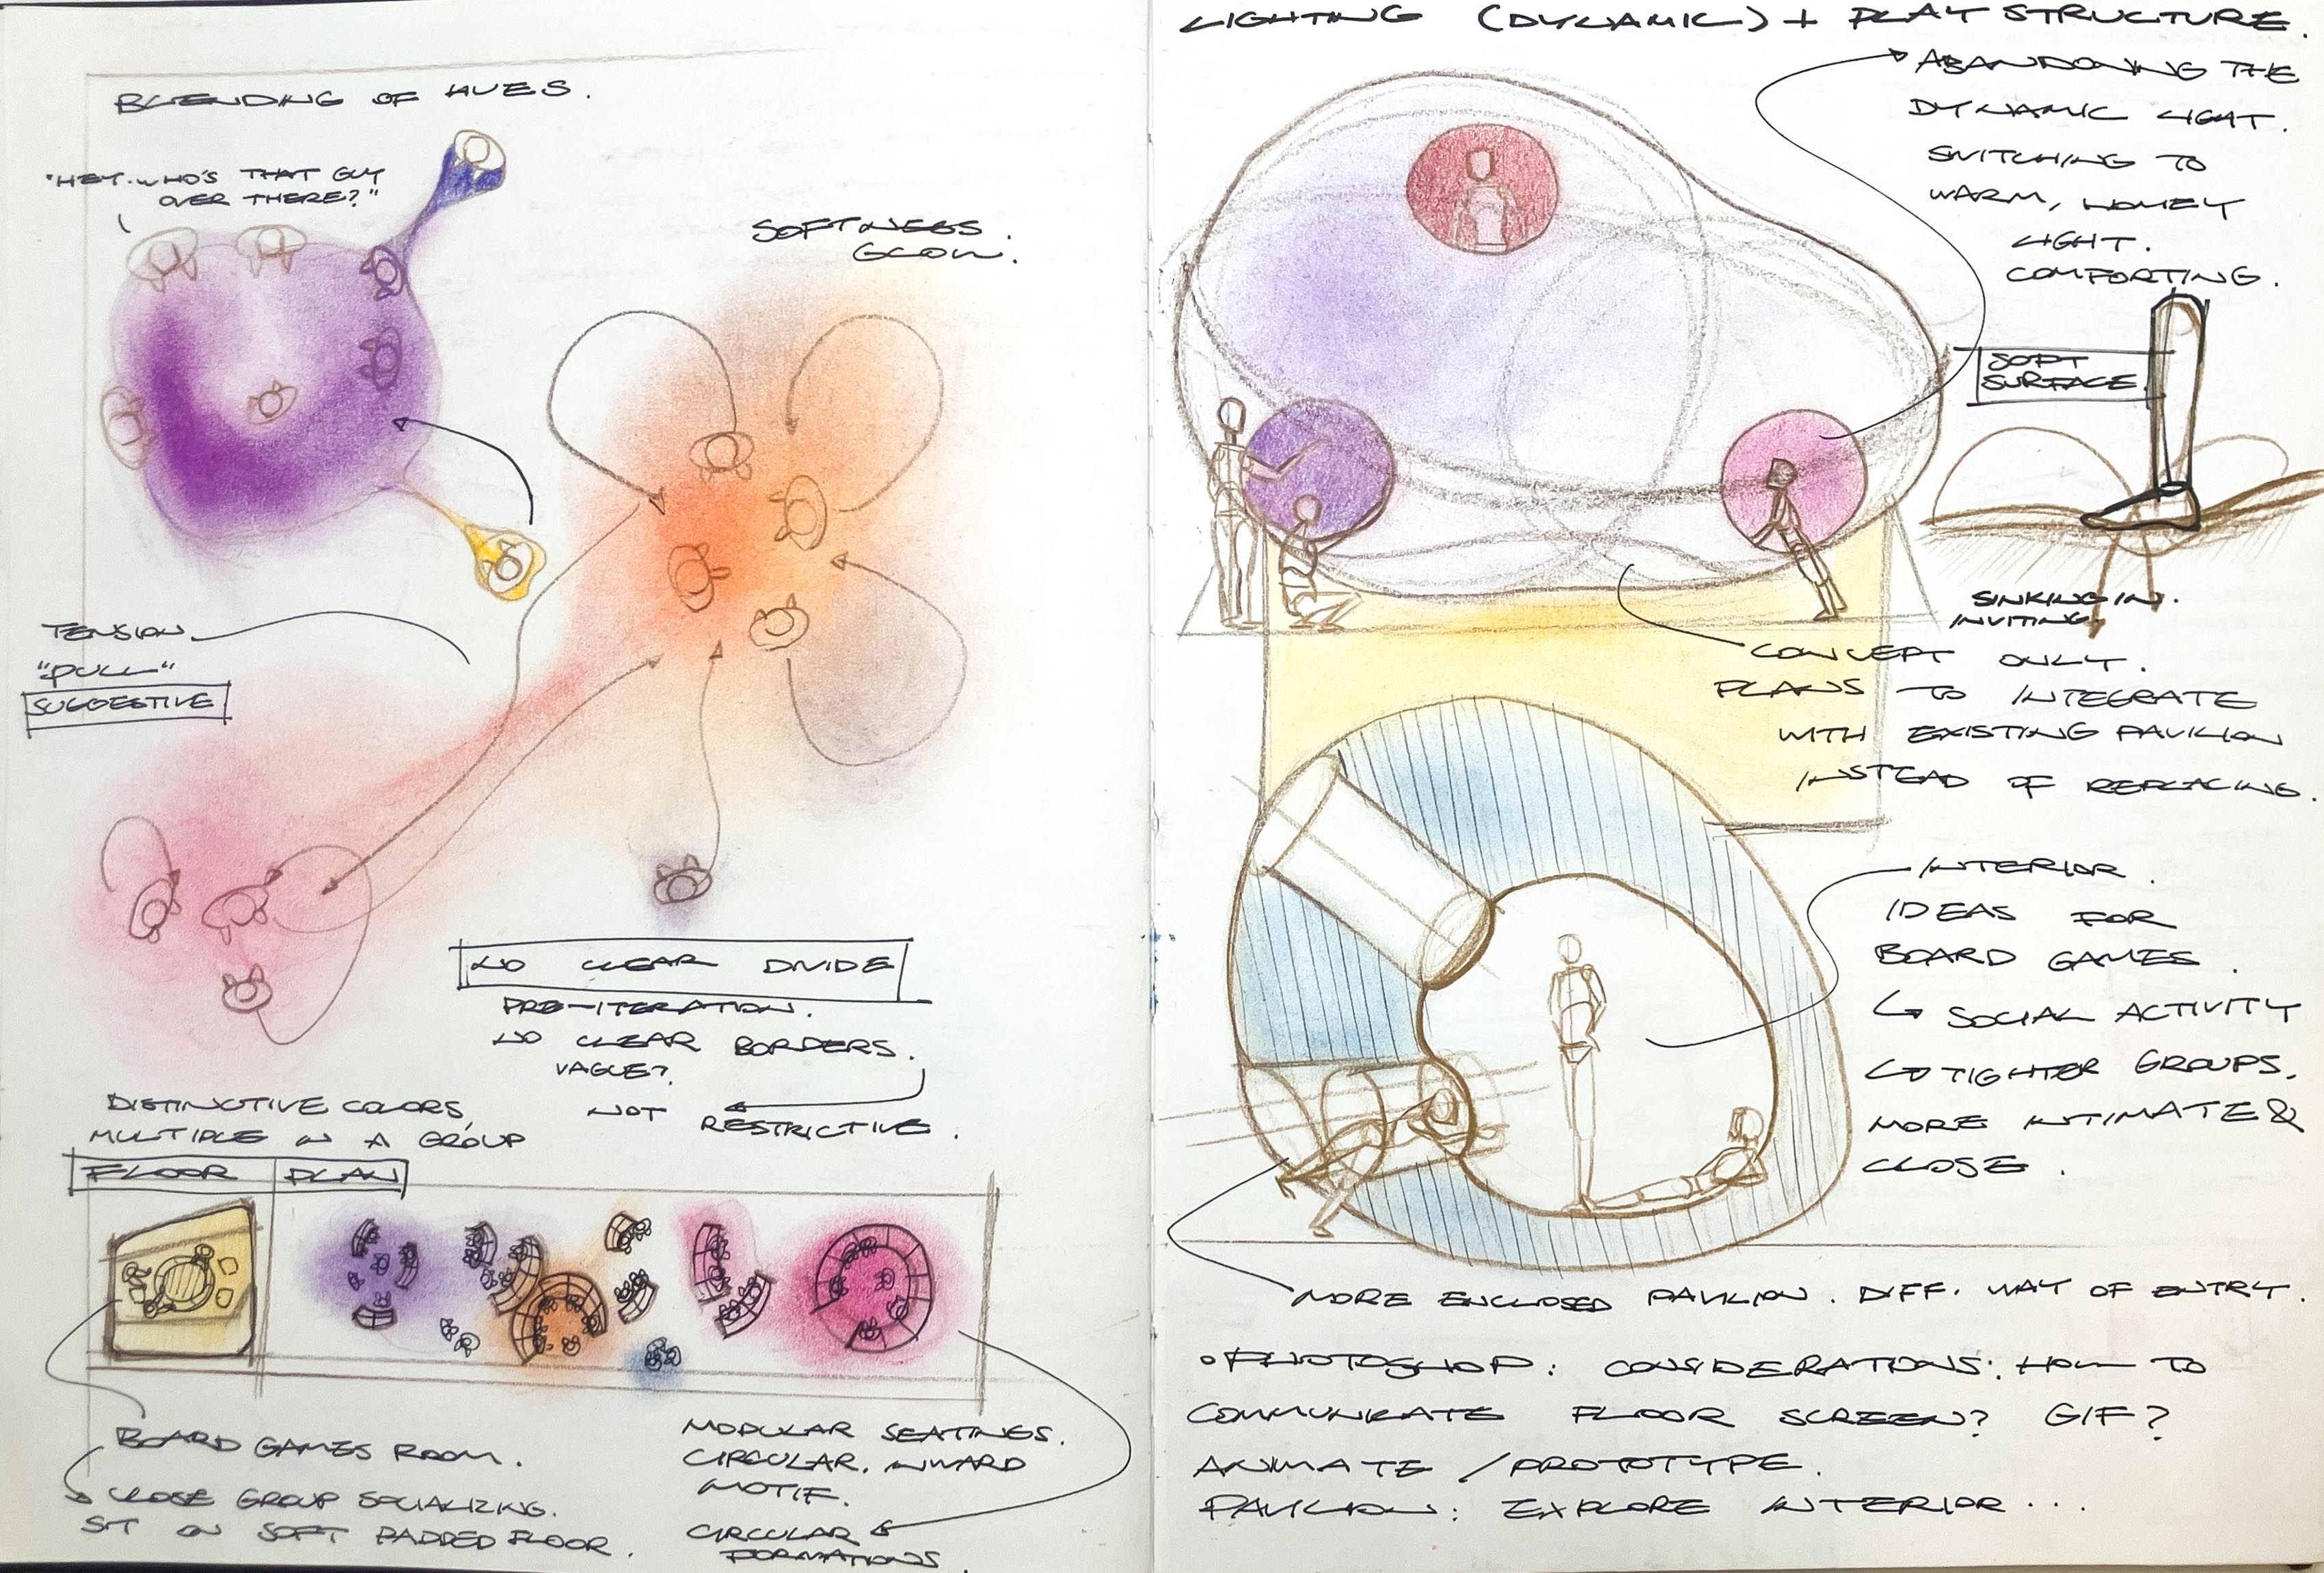 BLENDING OF HUES.
"HEY. WHO'S THAT GUY
OVER THERE?"
SOFTNESS.
GLOW.
TENSION
"PULL"
SUGGESTIVE
NO CLEAR DIVIDE
PRE-ITERATION.
NO CLEAR BORDERS.
VAGUE?
NOT RESTRICTIVE.
DISTINCTIVE COLORS,
MULTIPLE IN A GROUP
FLOOR PLAN
BOARD GAMES ROOM.
CLOSE GROUP SOCIALIZING.
SIT ON SOFT PADDED FLOOR.
MODULAR SEATINGS.
CIRCULAR, INWARD
MOTIF.
CIRCULAR
FORMATIONS.
LIGHTING (DYNAMIC) + PLAY STRUCTURE.
ABANDONING THE
DYNAMIC LIGHT.
SWITCHING TO
WARM, HOMEY
LIGHT.
COMFORTING.
SOFT
SURFACE.
SINKING IN.
INVITING.
CONCEPT ONLY.
PLANS TO INTEGRATE
WITH EXISTING PAVILION
INSTEAD OF REPLACING.
INTERIOR.
IDEAS FOR
BOARD GAMES.
SOCIAL ACTIVITY
TIGHTER GROUPS.
MORE INTIMATE &
CLOSE.
MORE ENCLOSED PAVILION. DIFF. WAY OF ENTRY.
PHOTOSHOP: CONSIDERATIONS: HOW TO
COMMUNICATE FLOOR SCREEN? GIF?
ANIMATE / PROTOTYPE.
PAVILION: EXPLORE INTERIOR...